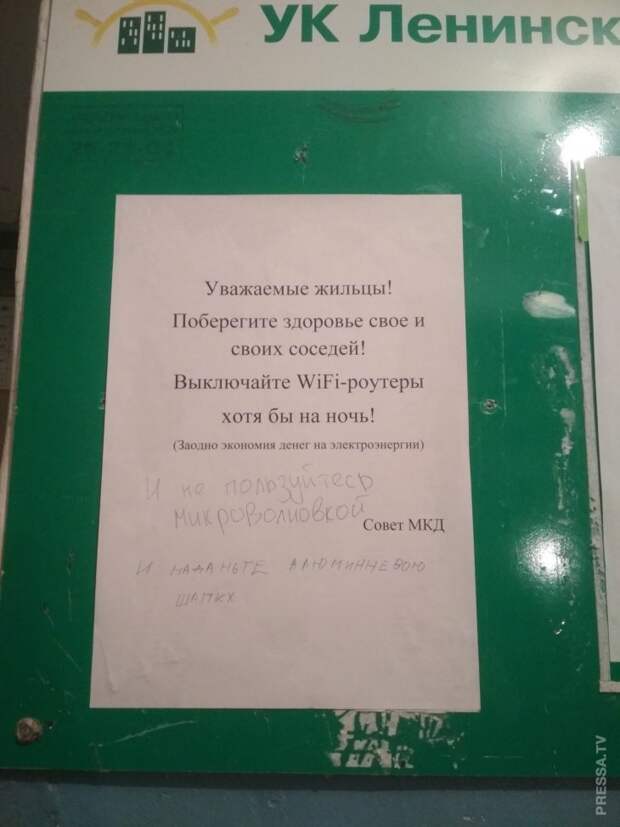 УК Ленинск
Уважаемые жильцы!
Поберегите здоровье свое и
своих соседей!
Выключайте WiFi-роутеры
хотя бы на ночь!
(Заодно экономия денег на электроэнергии)
И не пользуйтесь
микроволновкой
Совет МКД
И НАДЕНЬТЕ АЛЮМИННЕВОЮ
ШАПКУ
PRESSA.TV